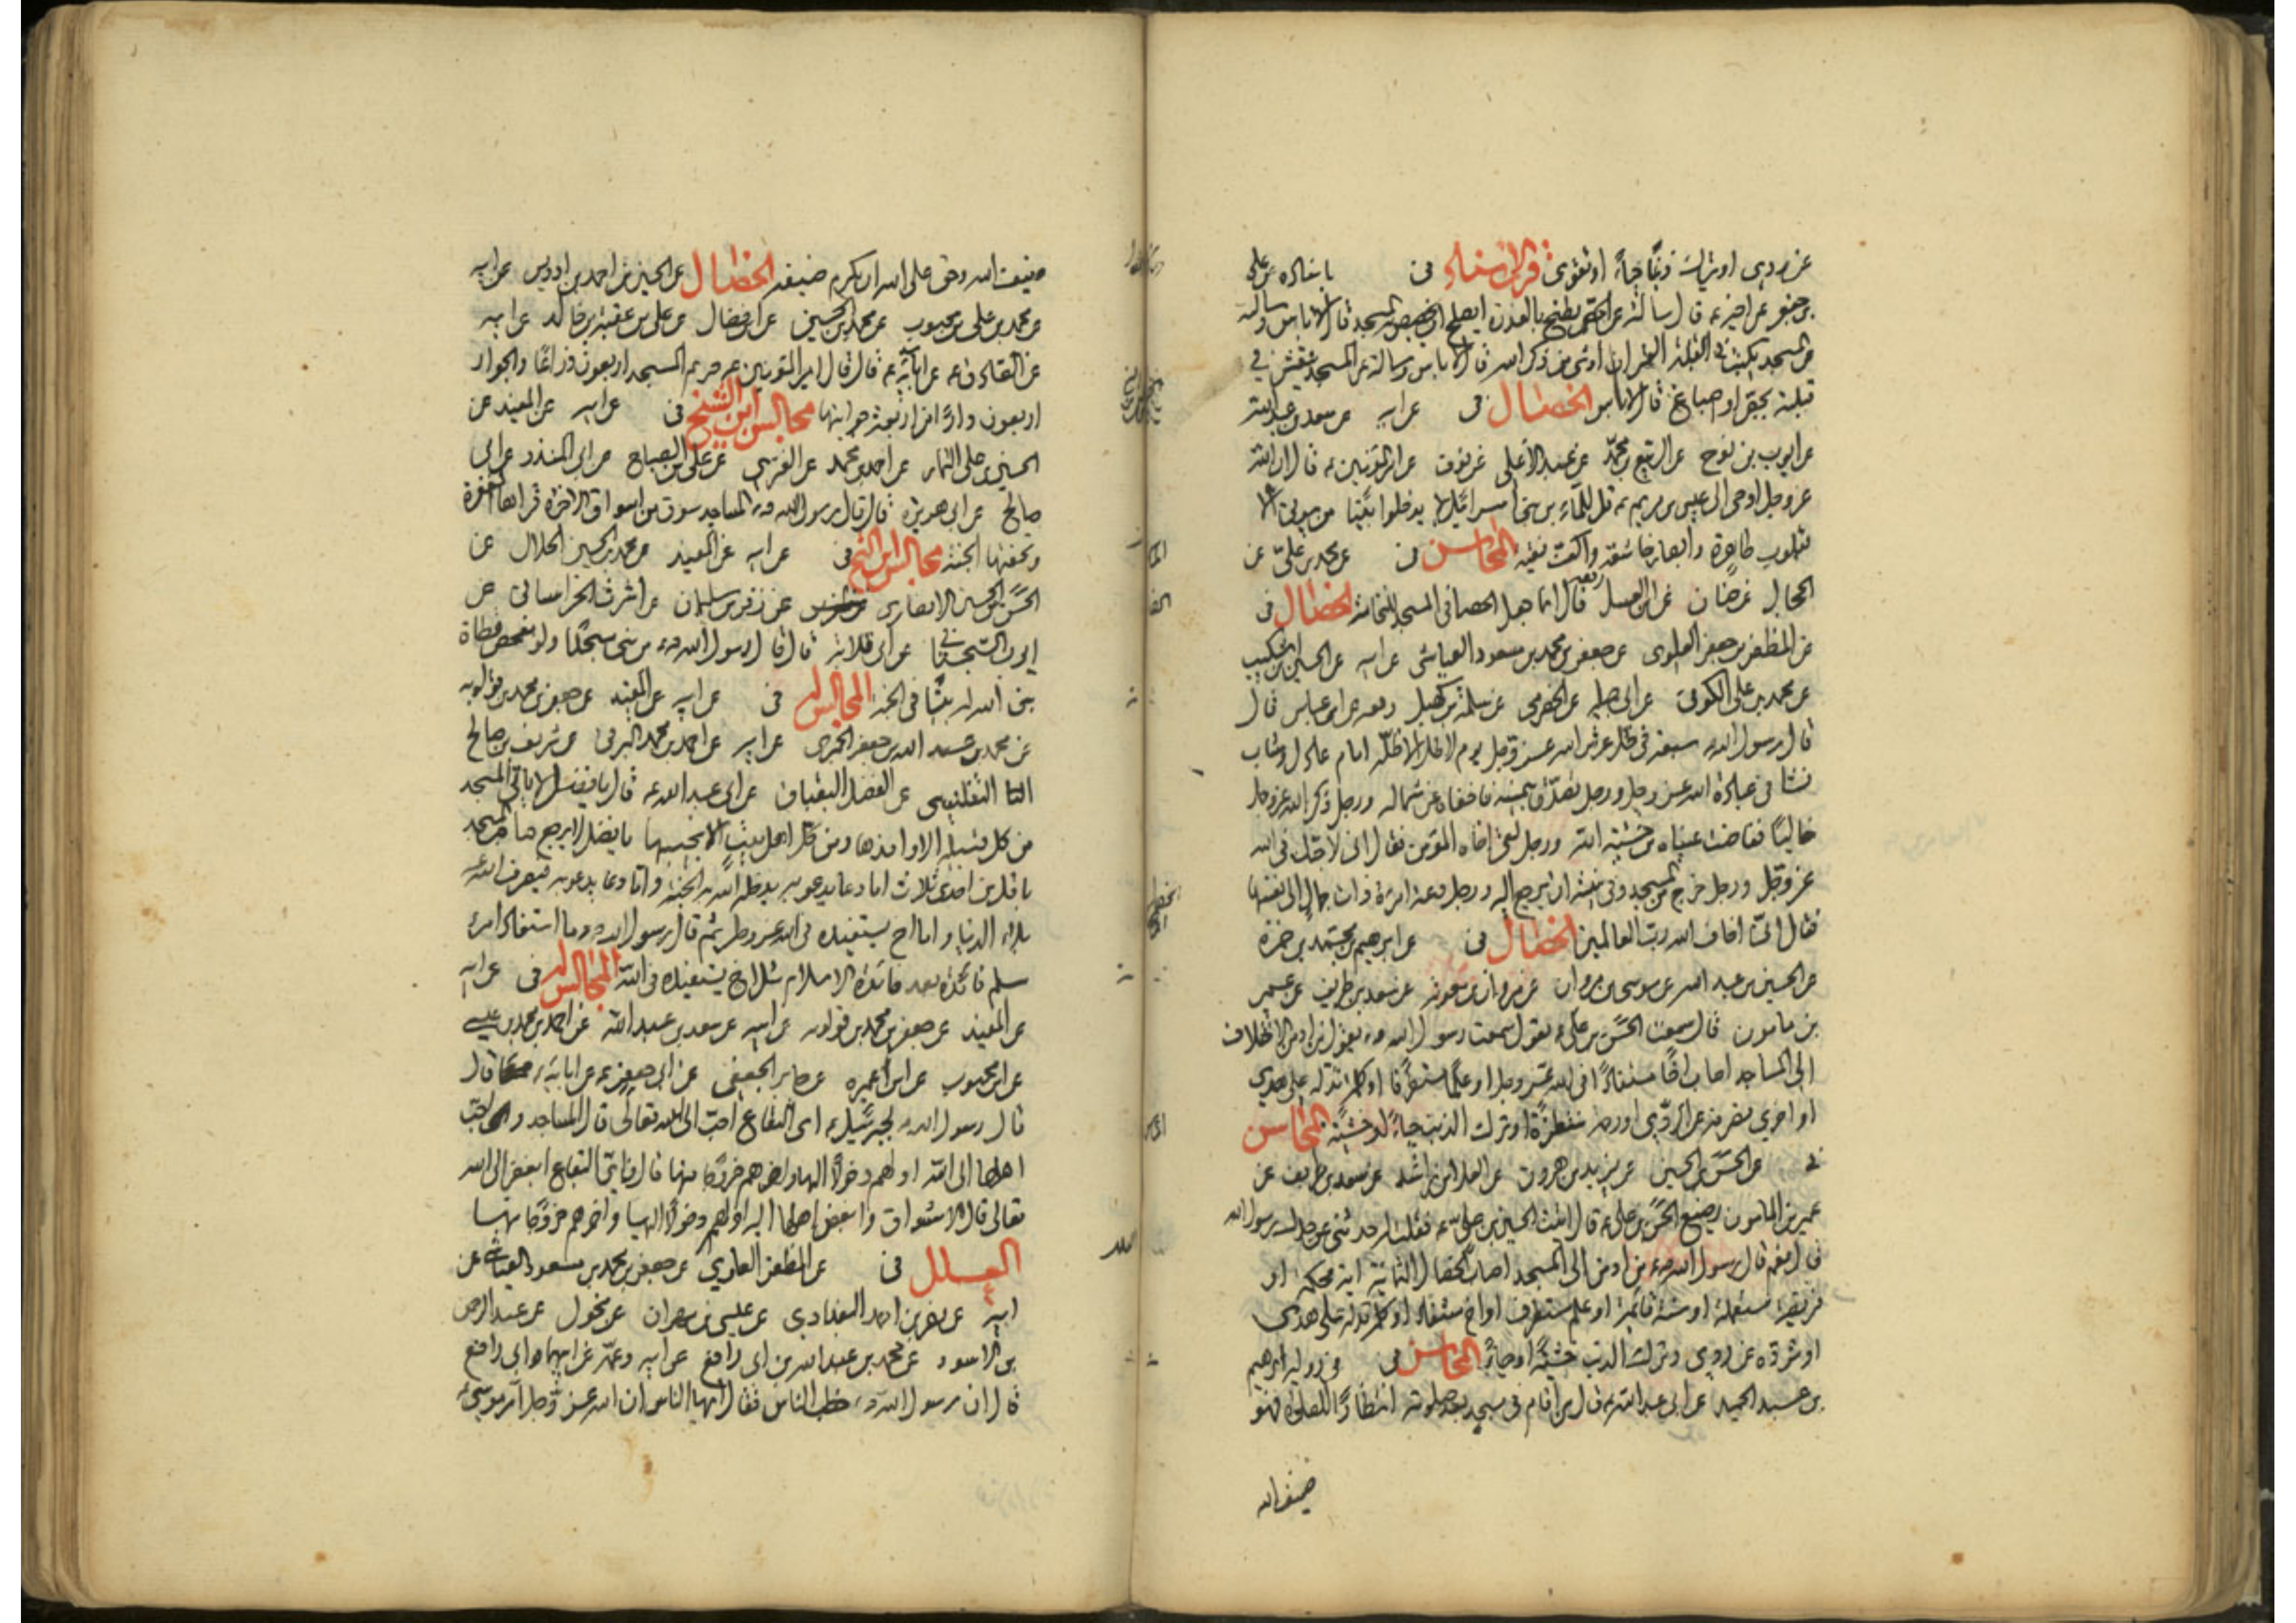 عن ردى او يترك ذنبا حياء او تقوى قرب الاسناد فى باسناده عن على
بن جعفر عن اخيه ع قال سالته عن الجص يطبخ بالعذرة ايصلح ان يجصص به المسجد قال لا باس وسالته
عن المسجد يكتب فى القبلة القران او شى من ذكر الله قال لا باس وسالته عن المسجد ينقش فى
قبلته بجص او اصباغ قال لا باس الخصال فى عن ابيه عن سعد بن عبد الله
عن ايوب بن نوح عن الربيع بن محمد عن عبد الاعلى عن نوف عن امير المؤمنين ع قال ان الله
عز وجل اوحى الى عيسى بن مريم ع قل للملاء من بنى اسرائيل لا يدخلوا بيتا من بيوتى الا
بقلوب طاهرة وابصار خاشعة واكف نقية المحاسن فى عن محمد بن على عن
الحجال عن حنان عن ابن العسل رفعه قال انما جعل الحصا فى المسجد للنخامة الخصال فى
عن المظفر بن جعفر العلوى عن جعفر بن محمد بن مسعود العياشى عن ابيه عن الحسين بن اشكيب
عن محمد بن على الكوفى عن ابى جميلة عن الحضرمى عن سلمة بن كهيل رفعه عن ابن عباس قال
قال رسول الله ص سبعة فى ظل عرش الله عز وجل يوم لا ظل الا ظله امام عادل وشاب
نشا فى عبادة الله عز وجل ورجل تصدق بيمينه فاخفاه عن شماله ورجل ذكر الله عز وجل
خاليا ففاضت عيناه من خشية الله ورجل لقى اخاه المؤمن فقال انى لاحبك فى الله
عز وجل ورجل خرج من المسجد وفى نيته ان يرجع اليه ورجل دعته امراة ذات جمال الى نفسها
فقال انى اخاف الله رب العالمين الخصال فى عن ابرهيم بن محمد بن حمزة
عن الحسين بن عبد الله عن موسى بن مروان عن مروان بن معوية عن سعد بن طريف عن عمير
بن مامون قال سمعت الحسن بن على ع يقول سمعت رسول الله ص يقول من ادمن الاختلاف
الى المساجد اصاب اخا مستفادا فى الله عز وجل او علما مستطرفا او كلمة تدله على هدى
او اخرى تصرفه عن الردى او رحمة منتظرة او ترك الذنب حياء او خشية المحاسن
فى عن الحسن بن الحسين عن يزيد بن هرون عن العلا بن راشد عن سعد بن طريف عن
عمير بن المامون رضيع الحسن بن على ع قال اتيت الحسين بن على ع فقلت له حدثنى عن جدك رسول الله
قال نعم قال رسول الله ص من ادمن الى المسجد اصاب الخصال الثمانية اية محكمة او
فريضة مستعملة او سنة قائمة او علم مستطرف او اخ مستفاد او كلمة تدله على هدى
او ترده عن ردى وترك الذنب خشية او حياء المحاسن فى فى رواية ابرهيم
بن عبد الحميد عن ابى عبد الله ع قال من اقام فى مسجد بعد صلوته انتظارا للصلوة فهو
ضيف الله
ضيف الله وحق على الله ان يكرم ضيفه الخصال عن الحسين بن احمد بن ادريس عن ابيه
عن محمد بن على بن محبوب عن محمد بن الحسين عن ابن فضال عن على بن عقبة بن خالد عن ابيه
عن الصادق ع عن ابائه ع قال قال امير المؤمنين ع حريم المسجد اربعون ذراعا والجوار
اربعون دارا من اربعة جوانبها مجالس ابن الشيخ فى عن ابيه عن المفيد عن
الحسين بن على التمار عن احمد بن محمد عن الفرسى عن على بن الصباح عن ابى المنذر عن ابى
صالح عن ابى هريرة قال قال رسول الله ص المساجد سوق من اسواق الاخرة قراها المغفرة
وتحفتها الجنة مجالس ابن الشيخ فى عن ابيه عن المفيد عن محمد بن الحسين الحلال عن
الحسن بن الحسين الانصارى عن زفر بن سليمان عن اشرف الخراسانى عن
ايوب السجستانى عن ابى قلابة قال قال رسول الله ص من بنى مسجدا ولو مفحص قطاة
بنى الله له بيتا فى الجنة المجالس له فى عن ابيه عن المفيد عن جعفر بن محمد بن قولويه
عن محمد بن عبد الله بن جعفر الحميرى عن ابيه عن احمد بن محمد البرقى عن شريف بن صالح
التفليسى عن الفضل البقباق عن ابى عبد الله ع قال يا فضل لا ياتى المسجد
من كل قبيلة الا وافدها ومن كل اهل بيت الا نجيبها يا فضل لا يرجع صاحب المسجد
باقل من احدى ثلاث اما دعا يدعو به يدخله الله به الجنة واما دعا يدعو به فيصرف الله عنه
بلاء الدنيا واما اخ يستفيده فى الله عز وجل ثم قال قال رسول الله ص وما استفاد امرء
مسلم فائدة بعد فائدة الاسلام مثل اخ يستفيده فى الله المجالس له فى عن ابيه
عن المفيد عن جعفر بن محمد بن قولويه عن ابيه عن سعد بن عبد الله عن احمد بن محمد بن عيسى
عن ابن محبوب عن ابن ابى عميرة عن جابر الجعفى عن ابى جعفر ع عن ابائه ع قال
قال رسول الله ص لجبرئيل ع اى البقاع احب الى الله تعالى قال المساجد واحب
اهلها الى الله اولهم دخولا اليها واخرهم خروجا منها قال فاى البقاع ابغض الى الله
تعالى قال الاسواق وابغض اهلها اليه اولهم دخولا اليها واخرهم خروجا منها
العلل فى عن المظفر العلوى عن جعفر بن محمد بن مسعود العياشى عن
ابيه عن نصر بن احمد البغدادى عن عيسى بن مهران عن مخول عن عبد الرحمن
بن الاسود عن محمد بن عبد الله بن ابى رافع عن ابيه وعمه عن ابيهما ابى رافع
قال ان رسول الله ص خطب الناس فقال ايها الناس ان الله عز وجل امر موسى ع